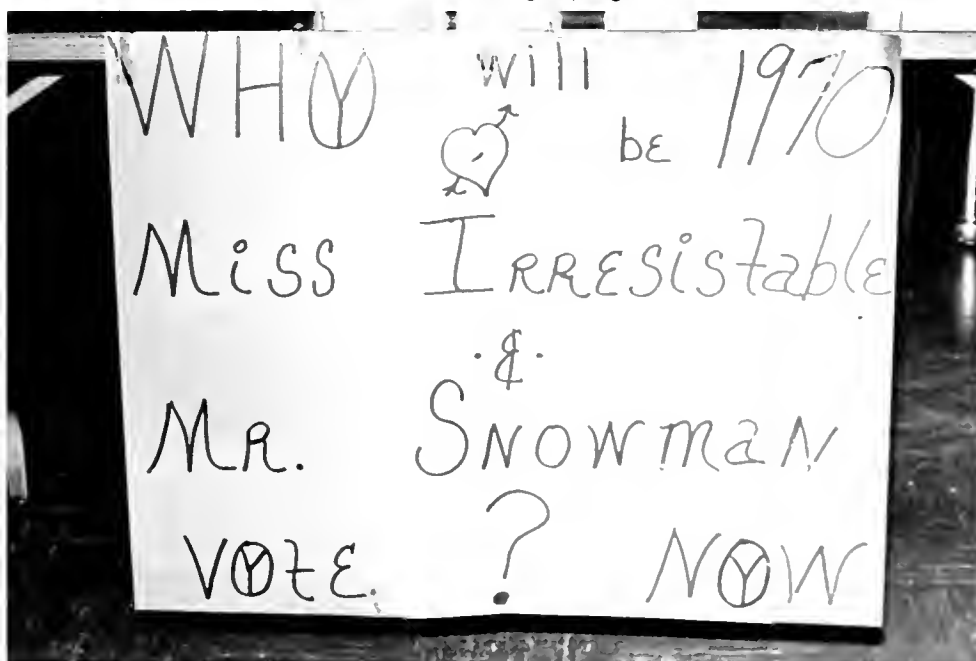 WHO will be 1970
Miss IRRESistablE
&
MR. SNOWmaN
VOtE ? NOW